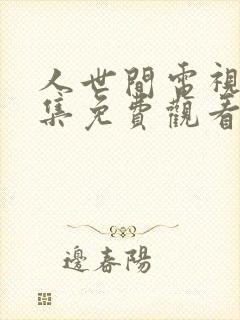 人世間電視
集免費觀看
邊春陽